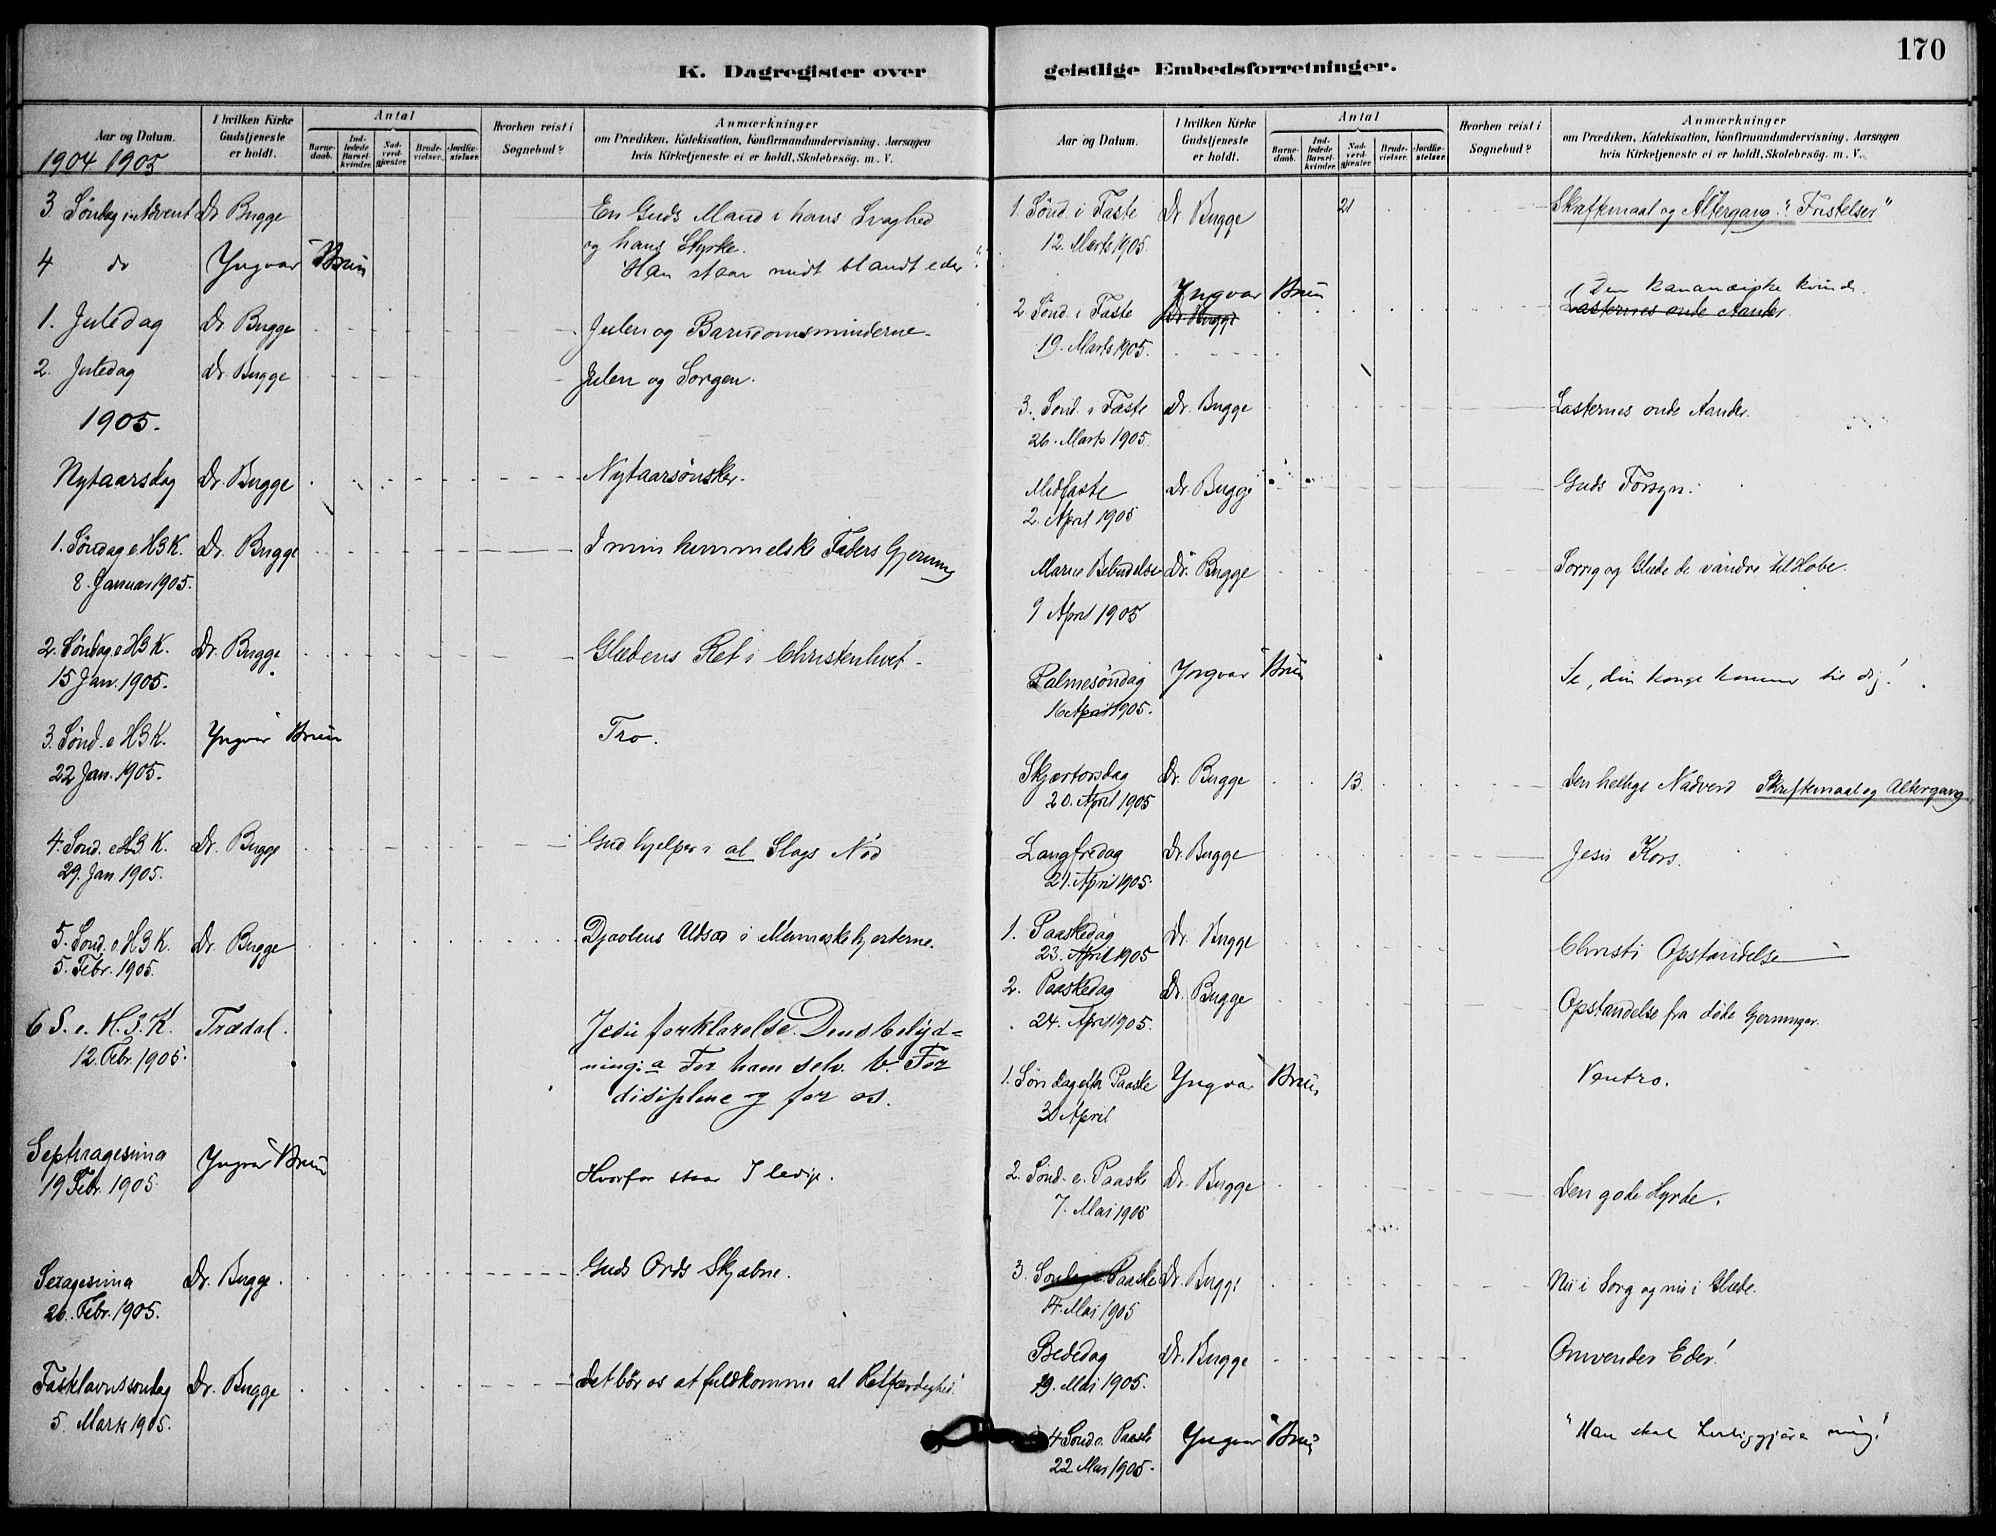 K. Dagregister over
Aar og Datum.
I hvilken Kirke Gudstjeneste er holdt.
Antal
Barne-daab.
Ind-ledede Barsel-kvinder.
Nad-verd-gjester.
Brude-vielser.
Jordfæ-stelser.
Hvorhen reist i Sognebud?
Anmærkninger
om Prædiken, Katekisation, Konfirmandundervisning. Aarsagen
hvis Kirketjeneste ei er holdt, Skolebesøg. m. V.
1904. 1905
3 Søndag i Advent Dr Bugge En Guds Mand i hans Svaghed
og hans Styrke.
4 do Yngvar Brun Han staar midt blandt eder
1. Juledag Dr Bugge Julen og Barndomsminderne
2. Juledag Dr. Bugge Julen og Sorgen.
1905.
Nytaarsdag Dr. Bugge Nytaarsønsker.
1. Søndag e H3K. Dr. Bugge I min himmelske Faders Gjerning
8. Januar 1905.
2. Søndag e H3K. Dr. Bugge Glædens Ret i Christenlivet
15 Jan. 1905.
3. Sønd. e H3K. Yngvar Brun Tro.
22 Jan. 1905.
4. Sond. e H3K. Dr. Bugge Gud hjelper i al Slags Nød
29. Jan 1905.
5. Sond. e. H3K. Dr. Bugge Djævlens Udsæd i Menneskehjerterne.
5. Febr. 1905.
6 S. e. H. 3. K. Trædal. Jesu forklarelse. Dens betyd=
12. Febr. 1905. ning: a For ham selv. b. For
disiplene og for os.
19 Febr. 1905 Yngvar Brun Hvorfor staar I ledige.
Sexagesima Dr. Bugge. Guds Ords Skjæbne.
26. Febr. 1905.
Fastelavnssondag Dr. Bugge "Det bør os at fuldkomme al Retfærdighed."
5. Marts 1905.
geistlige Embedsforretninger.
170
Aar og Datum.
I hvilken Kirke Gudstjeneste er holdt.
Antal
Barne-daab.
Ind-ledede Barsel-kvinder.
Nad-verd-gjester.
Brude-vielser.
Jordfæ-stelser.
Hvorhen reist i Sognebud?
Anmærkninger
om Prædiken, Katekisation, Konfirmandundervisning. Aarsagen
hvis Kirketjeneste ei er holdt, Skolebesøg. m. V.
1. Sønd. i Faste Dr Bugge 21 Skriftemaal og Altergang. "Fristelser"
12. Marts 1905.
Yngvar Brun Den kananæiske kvinde.
2 Sønd. i Faste Dr. Bugge Lasternes onde Aander
19. Marts 1905.
3. Sond. i Faste Dr. Bugge Lasternes onde Aander.
26. Marts 1905.
Midfaste Dr. Bugge Guds Forsyn.
2. April 1905
Mariæ Bebudelse Dr. Bugge Sorrig og Glæde de vandre til Hobe.
9 April 1905
Palmesøndag Yngvar Brun Se, din konge kommer til dig!
16 April 1905.
Skjærtorsdag Dr. Bugge 13. Den hellige Nadverd Skriftemaal og Altergang
20. April 1905
Langfredag Dr. Bugge Jesu Kors.
21. April 1905.
1. Paaskedag Dr. Bugge Christi Opstandelse
23. April 1905
2. Paaskedag Dr. Bugge Opstandelse fra døde Gjerninger.
24. April 1905.
1. Søndag efter Paaske Yngvar Brun Vantro.
30 April
2. Sønd. e. Paaske Dr. Bugge Den gode Hyrde.
7. Mai 1905
3. Søndag e. Paaske Dr. Bugge Nu i Sorg og nu i Glæde.
14. Mai 1905
Bededag Dr. Bugge Omvender Eder!
19. Mai 1905.
4 Sond e. Paaske Yngvar Brun "Han skal herliggjøre mig!"
22. Mai 1905.